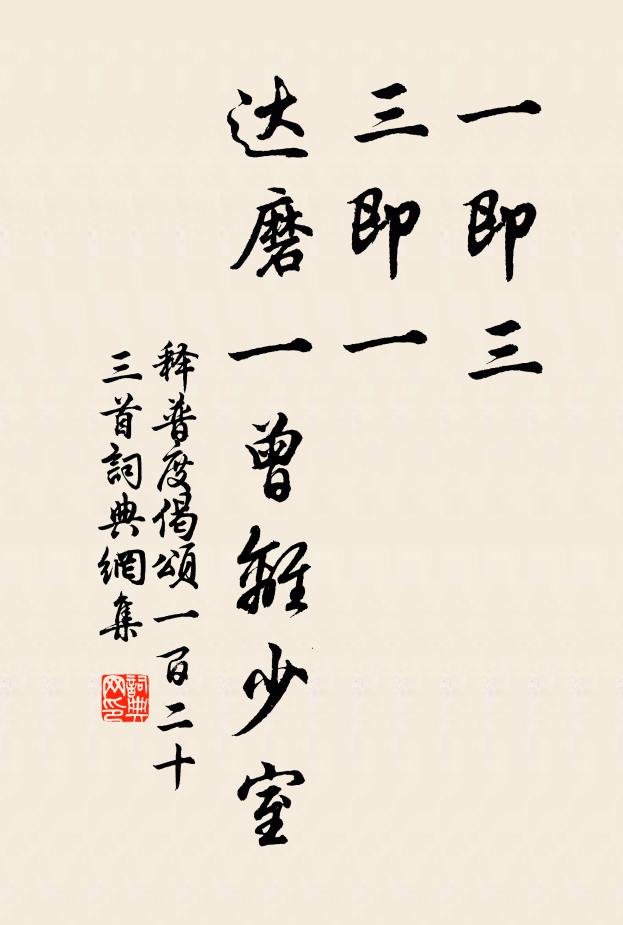 一即三
三即一
达磨一曾離少室
释普度偈頌一百二十
三首詞典網集
詞典
网印